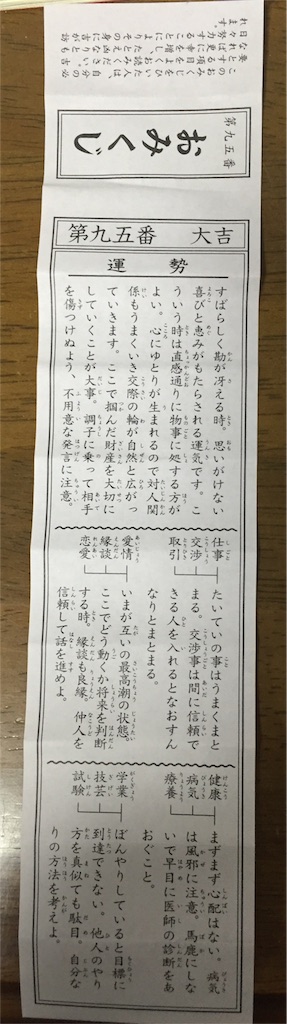 第九五番
おみくじ
第九五番　大吉
運勢
すばらしく勘が冴える時、思いがけない
喜びと恵みがもたらされる運気です。こ
ういう時は直感通りに物事に処する方が
よい。心にゆとりが生まれるので対人関
係もうまくいき交際の輪が自然と広がっ
ていきます。ここで掴んだ財産を大切に
していくことが大事。調子に乗って相手
を傷つけぬよう、不用意な発言に注意。
仕事
交渉
取引
たいていの事はうまくまと
まる。交渉事は間に信頼で
きる人を入れるとなおすん
なりとまとまる。
愛情
縁談
恋愛
いまが互いの最高潮の状態。
ここでどう動くか将来を判断
する時。縁談も良縁。仲人を
信頼して話を進めよ。
健康
病気
療養
まずまず心配はない。病気
は風邪に注意。馬鹿にしな
いで早目に医師の診断をあ
おぐこと。
学業
技芸
試験
ぼんやりしていると目標に
到達できない。他人のやり
方を真似ても駄目。自分な
りの方法を考えよ。